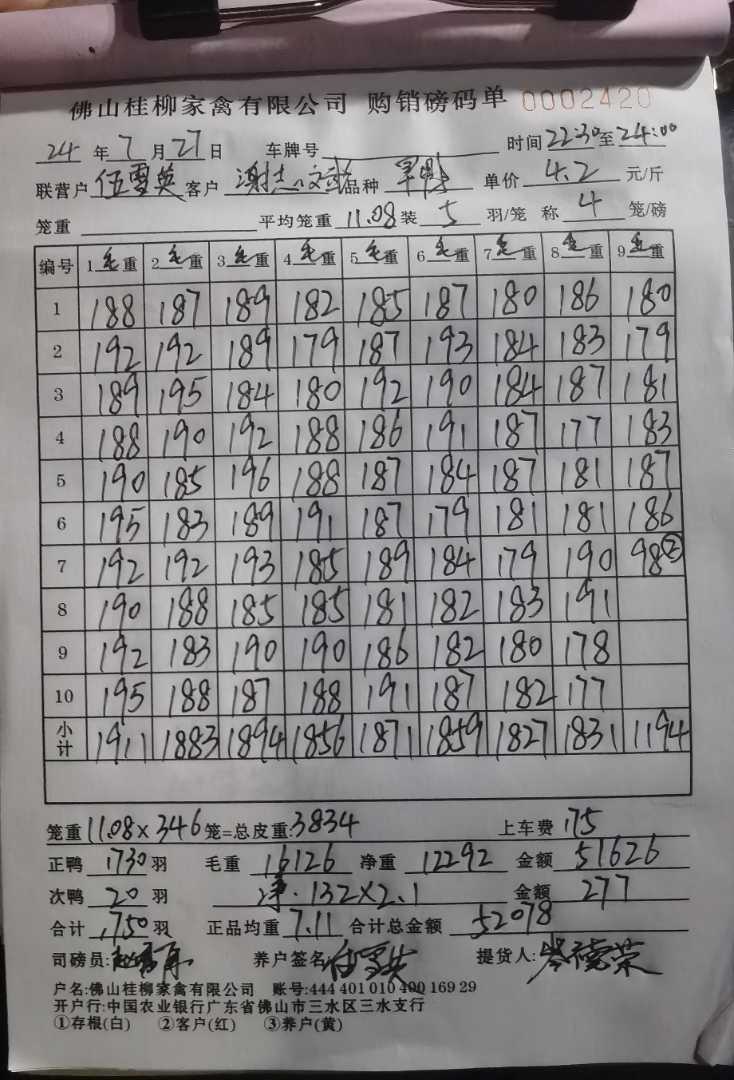 佛山桂柳家禽有限公司 购销磅码单 0002420
24 年 7 月 27 日 车牌号 时间 22:30 至 24:00
联营户 伍雪英 客户 谢志 品种 单价 4.2 元/斤
笼重 平均笼重 11.08 装 5 羽/笼 称 4 笼/磅
编号 1毛重 2毛重 3毛重 4毛重 5毛重 6毛重 7毛重 8毛重 9毛重
1 188 187 189 182 185 187 180 186 180
2 192 192 189 179 187 193 184 183 179
3 189 195 184 180 192 190 184 187 181
4 188 190 192 188 186 191 187 177 183
5 190 185 196 188 187 184 187 181 187
6 195 183 189 191 187 179 181 181 186
7 192 192 193 185 189 184 179 190 98②
8 190 188 185 185 181 182 183 191
9 192 183 190 190 186 182 180 178
10 195 188 187 188 191 187 182 177
小计 1911 1883 1894 1856 1871 1859 1827 1831 1194
笼重 11.08×346 笼=总皮重:3834 上车费 175
正鸭 1730 羽 毛重 16126 净重 12292 金额 51626
次鸭 20 羽 净·132×2.1 金额 277
合计 1750 羽 正品均重 7.11 合计总金额 52078
司磅员: 养户签名 伍雪英 提货人:
户名:佛山桂柳家禽有限公司 账号:444 401 010 400 169 29
开户行:中国农业银行广东省佛山市三水区三水支行
①存根(白) ②客户(红) ③养户(黄)